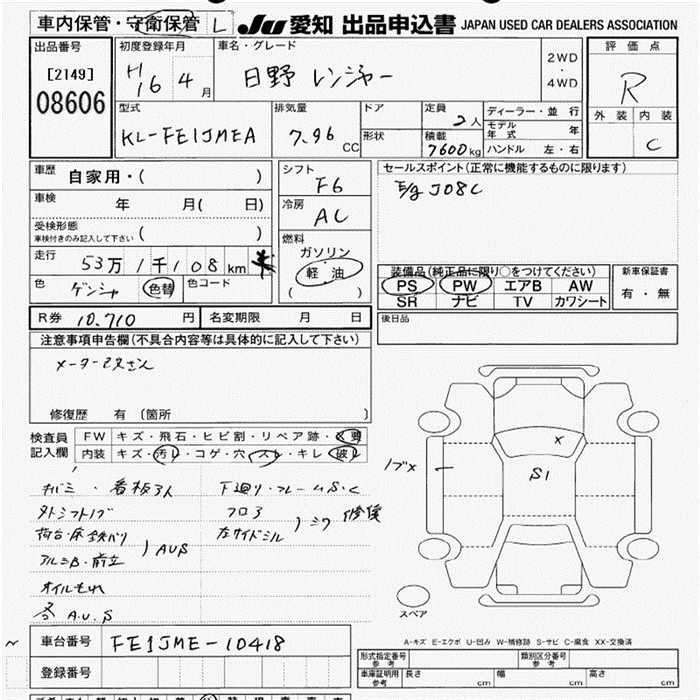 車内保管・守衛保管 L
JU 愛知 出品申込書 JAPAN USED CAR DEALERS ASSOCIATION
出品番号
[2149]
08606
初度登録年月
H16 4月
車名・グレード
日野 レンジャー
2WD
・
4WD
評価点
R
外装 内装
C
型式
KL-FE1JMEA
排気量
7.96 CC
ドア
形状
定員
2人
積載
7600kg
ディーラー・並行
モデル年式 年
ハンドル 左・右
車歴 自家用・( )
車検 年 月( 日)
受検形態
車検付きのみ記入して下さい ( )
走行 53万1千108km
色 ゲンシャ 色替 色コード
シフト
F6
冷房
AC
燃料
ガソリン
軽油
( )
セールスポイント(正常に機能するものに限ります)
E/g J08C
装備品(純正品に限り○をつけてください)
PS PW エアB AW
SR ナビ TV カワシート
新車保証書
有・無
R券 10.710 円 名変期限 月 日
後日品
注意事項申告欄(不具合内容等は具体的に記入して下さい)
修復歴 有 (箇所 )
検査員
記入欄
FW キズ・飛石・ヒビ割・リペア跡・×要
内装 キズ・汚レ・コゲ・穴・スレ・キレ・破レ
キバミ・看板アト 下廻り・フレームS・C
外シフトノブ フロア
荷台・床鉄バリ 左サイドシル
)シワ 修復
アルミB・前立 )AUS
オイルもれ
各 A.U.S
X
S1
スペア
A-キズ E-エクボ U-凹み W-補修跡 S-サビ C-腐食 XX-交換済
車台番号 FE1JME-10418
登録番号
型式指定番号
参考
類別区分番号
参考
車庫証明用
参考
長さ cm 幅 cm 高さ cm